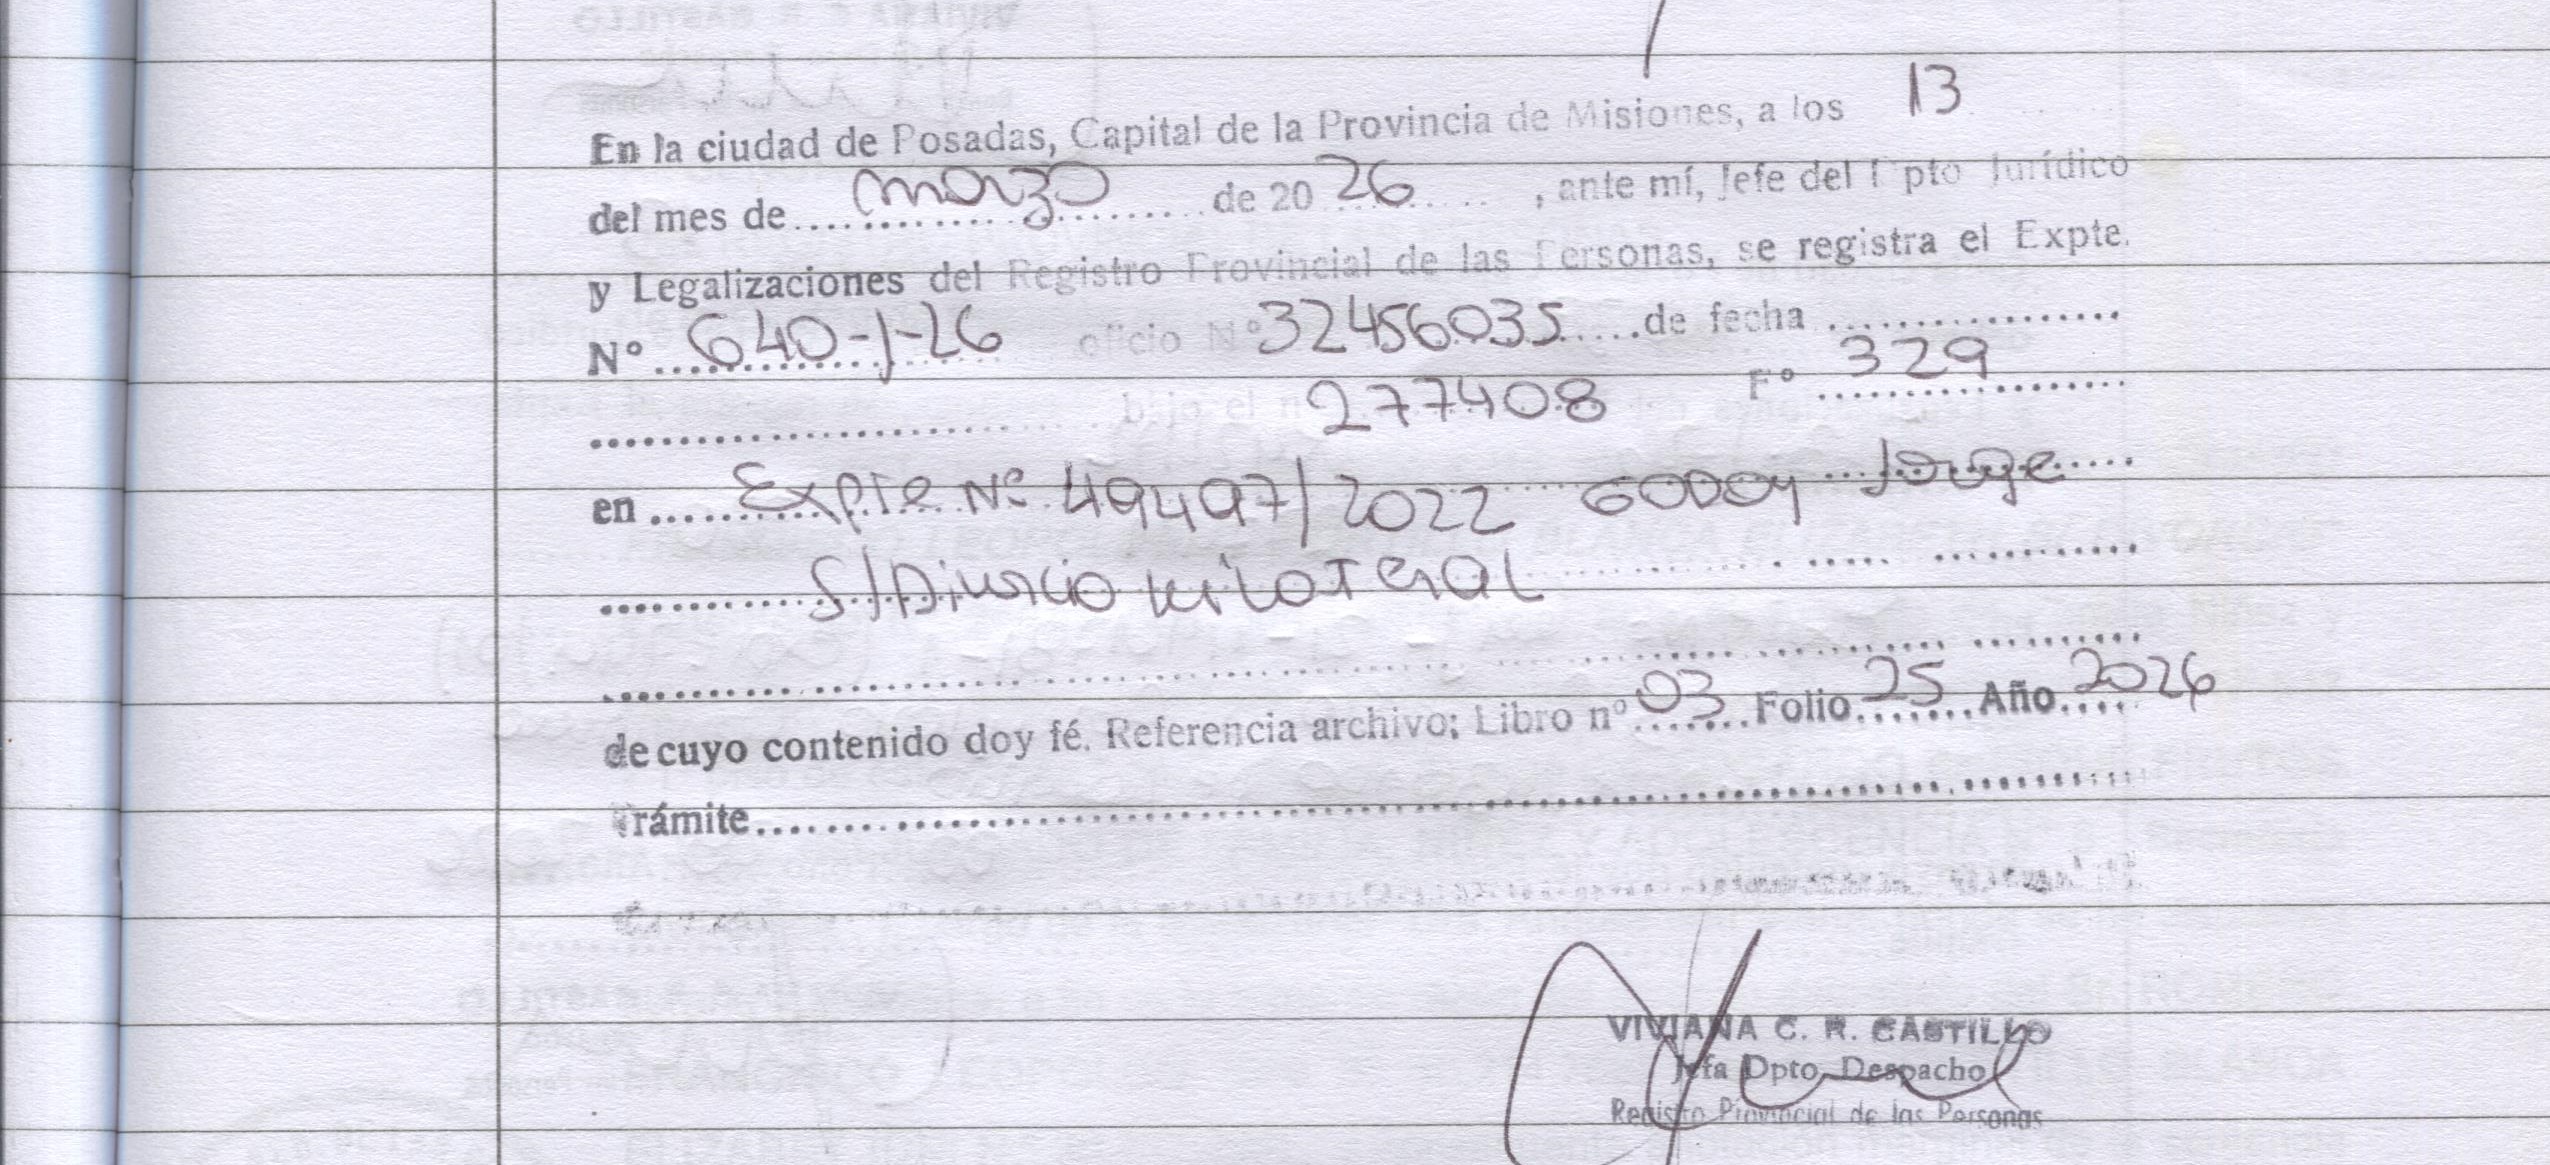 En la ciudad de Posadas, Capital de la Provincia de Misiones, a los 13
del mes de marzo de 20 26, ante mí, Jefe del Dpto Jurídico
y Legalizaciones del Registro Provincial de las Personas, se registra el Expte.
Nº 640-J-26 oficio Nº 32456035 de fecha
bajo el n 277408 Fº 329
en Expte Nº 49497/2022 GODOY Jorge
S/Divorcio unilateral
de cuyo contenido doy fé. Referencia archivo; Libro nº 03 Folio 25 Año 2026
Trámite
VIVIANA C. R. CASTILLO
Jefa Dpto. Despacho
Registro Provincial de las Personas